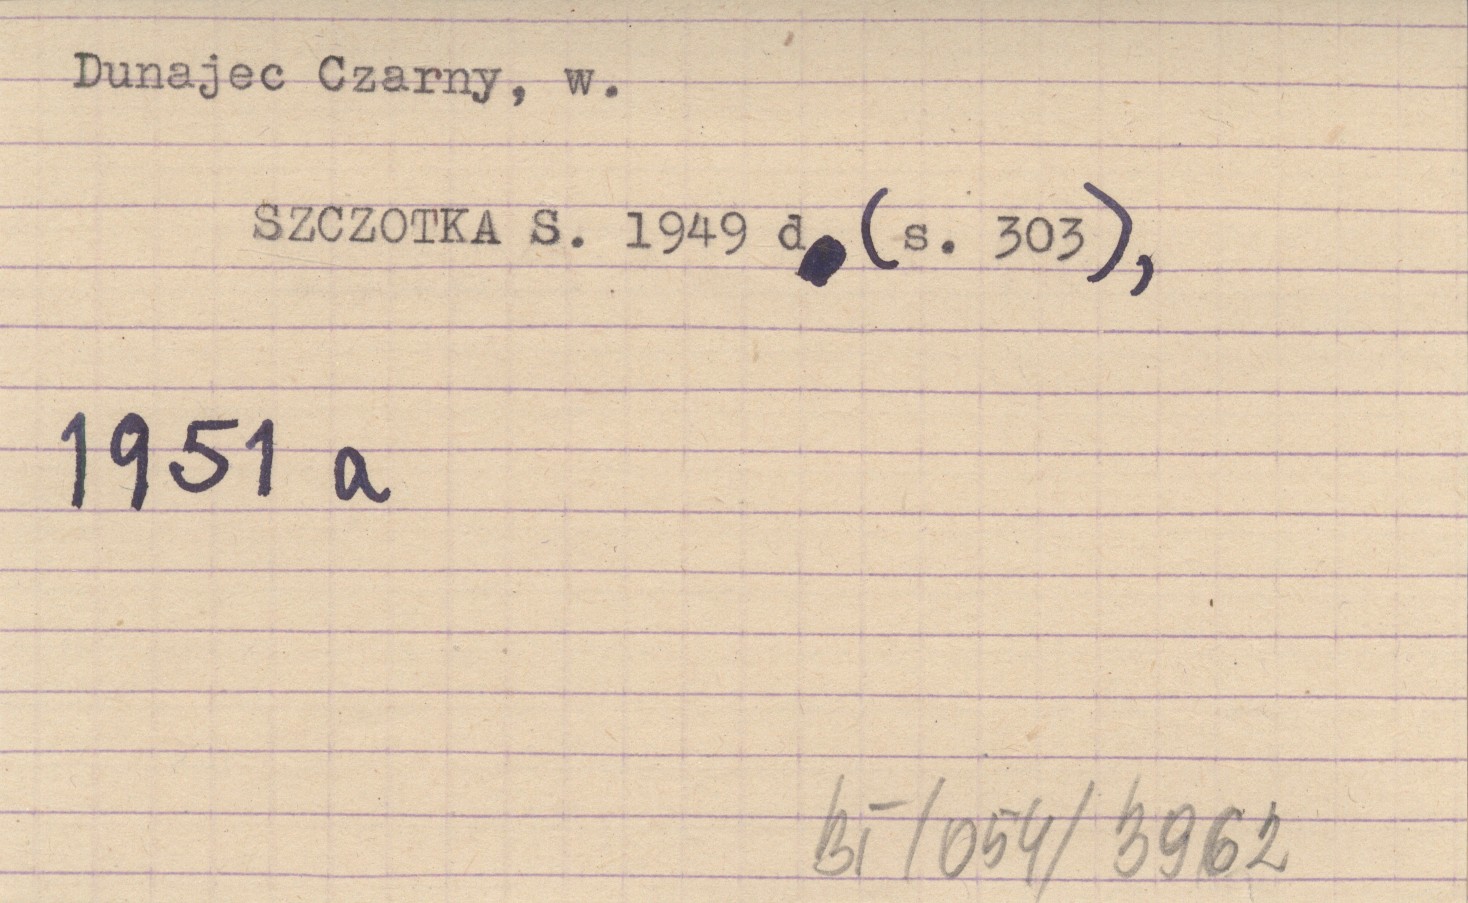 Dunajec Czarny, w.
SZCZOTKA S. 1949 d (s. 303),
1951 a
BI/054/3962